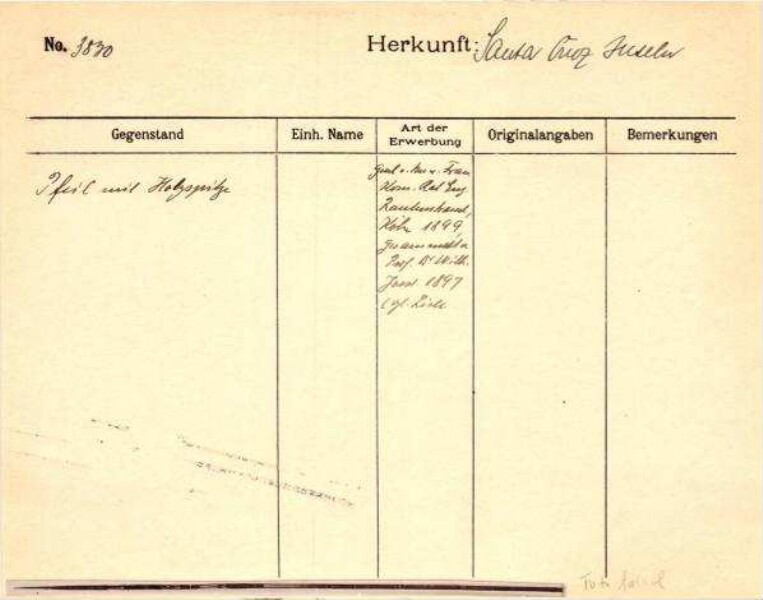 No. 3830
Herkunft: Santa Cruz Inseln
Gegenstand
Einh. Name
Art der Erwerbung
Originalangaben
Bemerkungen
Pfeil mit Holzspitze
Frau
Kom. Rat Eug
Rautenstrauch,
Köln 1899,
gesammelt v.
Prof. Dr Wilh.
Joest 1897